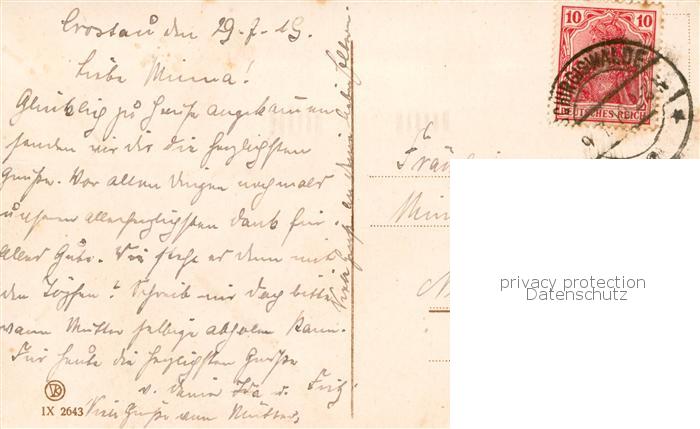 Crostau den 29.7.19.
Liebe Minna!
Glücklich zu Hause angekommen
senden wir dir die herzlichsten
Grüße. Vor allen Dingen nochmals
unseren allerherzlichsten Dank für
alles Gute. Wie steht es denn mit
den Töpfen? Schreib mir doch bitte
wann Mutter selbige abholen kann.
Für heute die herzlichsten Grüße
v. deiner Ida u. Fritz
Viele Grüße von Mutter.
Viele Grüße an deine lieben Eltern
IX 2643
10 10
DEUTSCHES REICH
SCHIRGISWALDE
Fräu
Min
privacy protection
Datenschutz